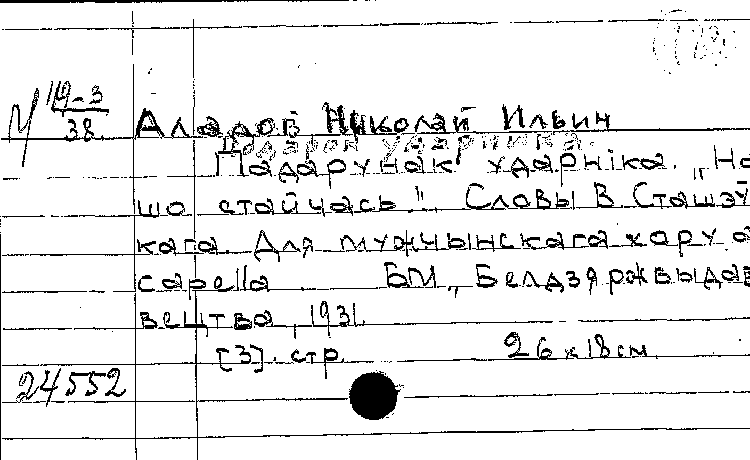 М 119-3
38
Аладов Николай Ильич
Подарок ударника.
Падарунак ударніка. „На
що стайчась!" Словы В. Сташэў
кага. Для мужчынскага хору а
capella БМ „Белдзяржвыдав
вецтва, 1931.
[3]. стр. 26 x 18 см.
24552